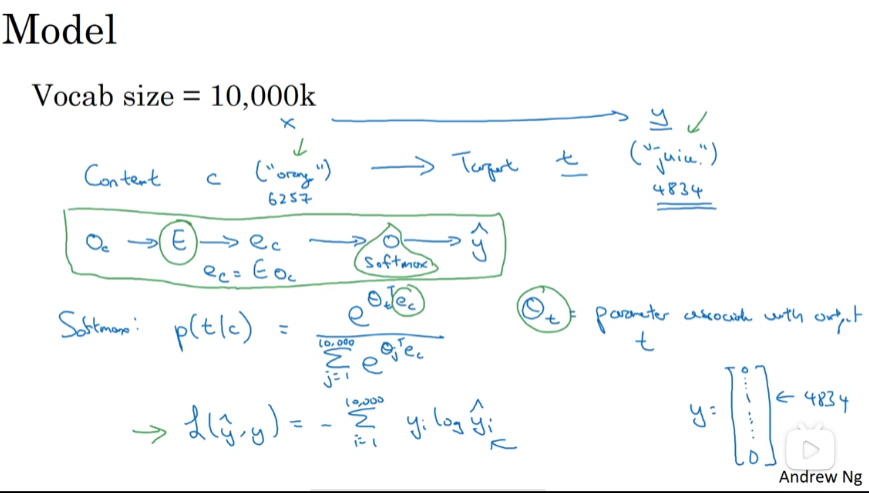 Model
Vocab size = 10,000k
x → y ✓
Content c ("orang") → Target t ("juice.")
6257 4834
O_c → E → e_c → O → ŷ
Softmax
e_c = E O_c
Softmax: p(t|c) = e^{θ_t^T e_c} / Σ_{j=1}^{10,000} e^{θ_j^T e_c} θ_t = parameter associate with output t
→ L(ŷ,y) = - Σ_{i=1}^{10,000} y_i log ŷ_i
y = [0 ⋮ 1 ⋮ 0] ← 4834
Andrew Ng